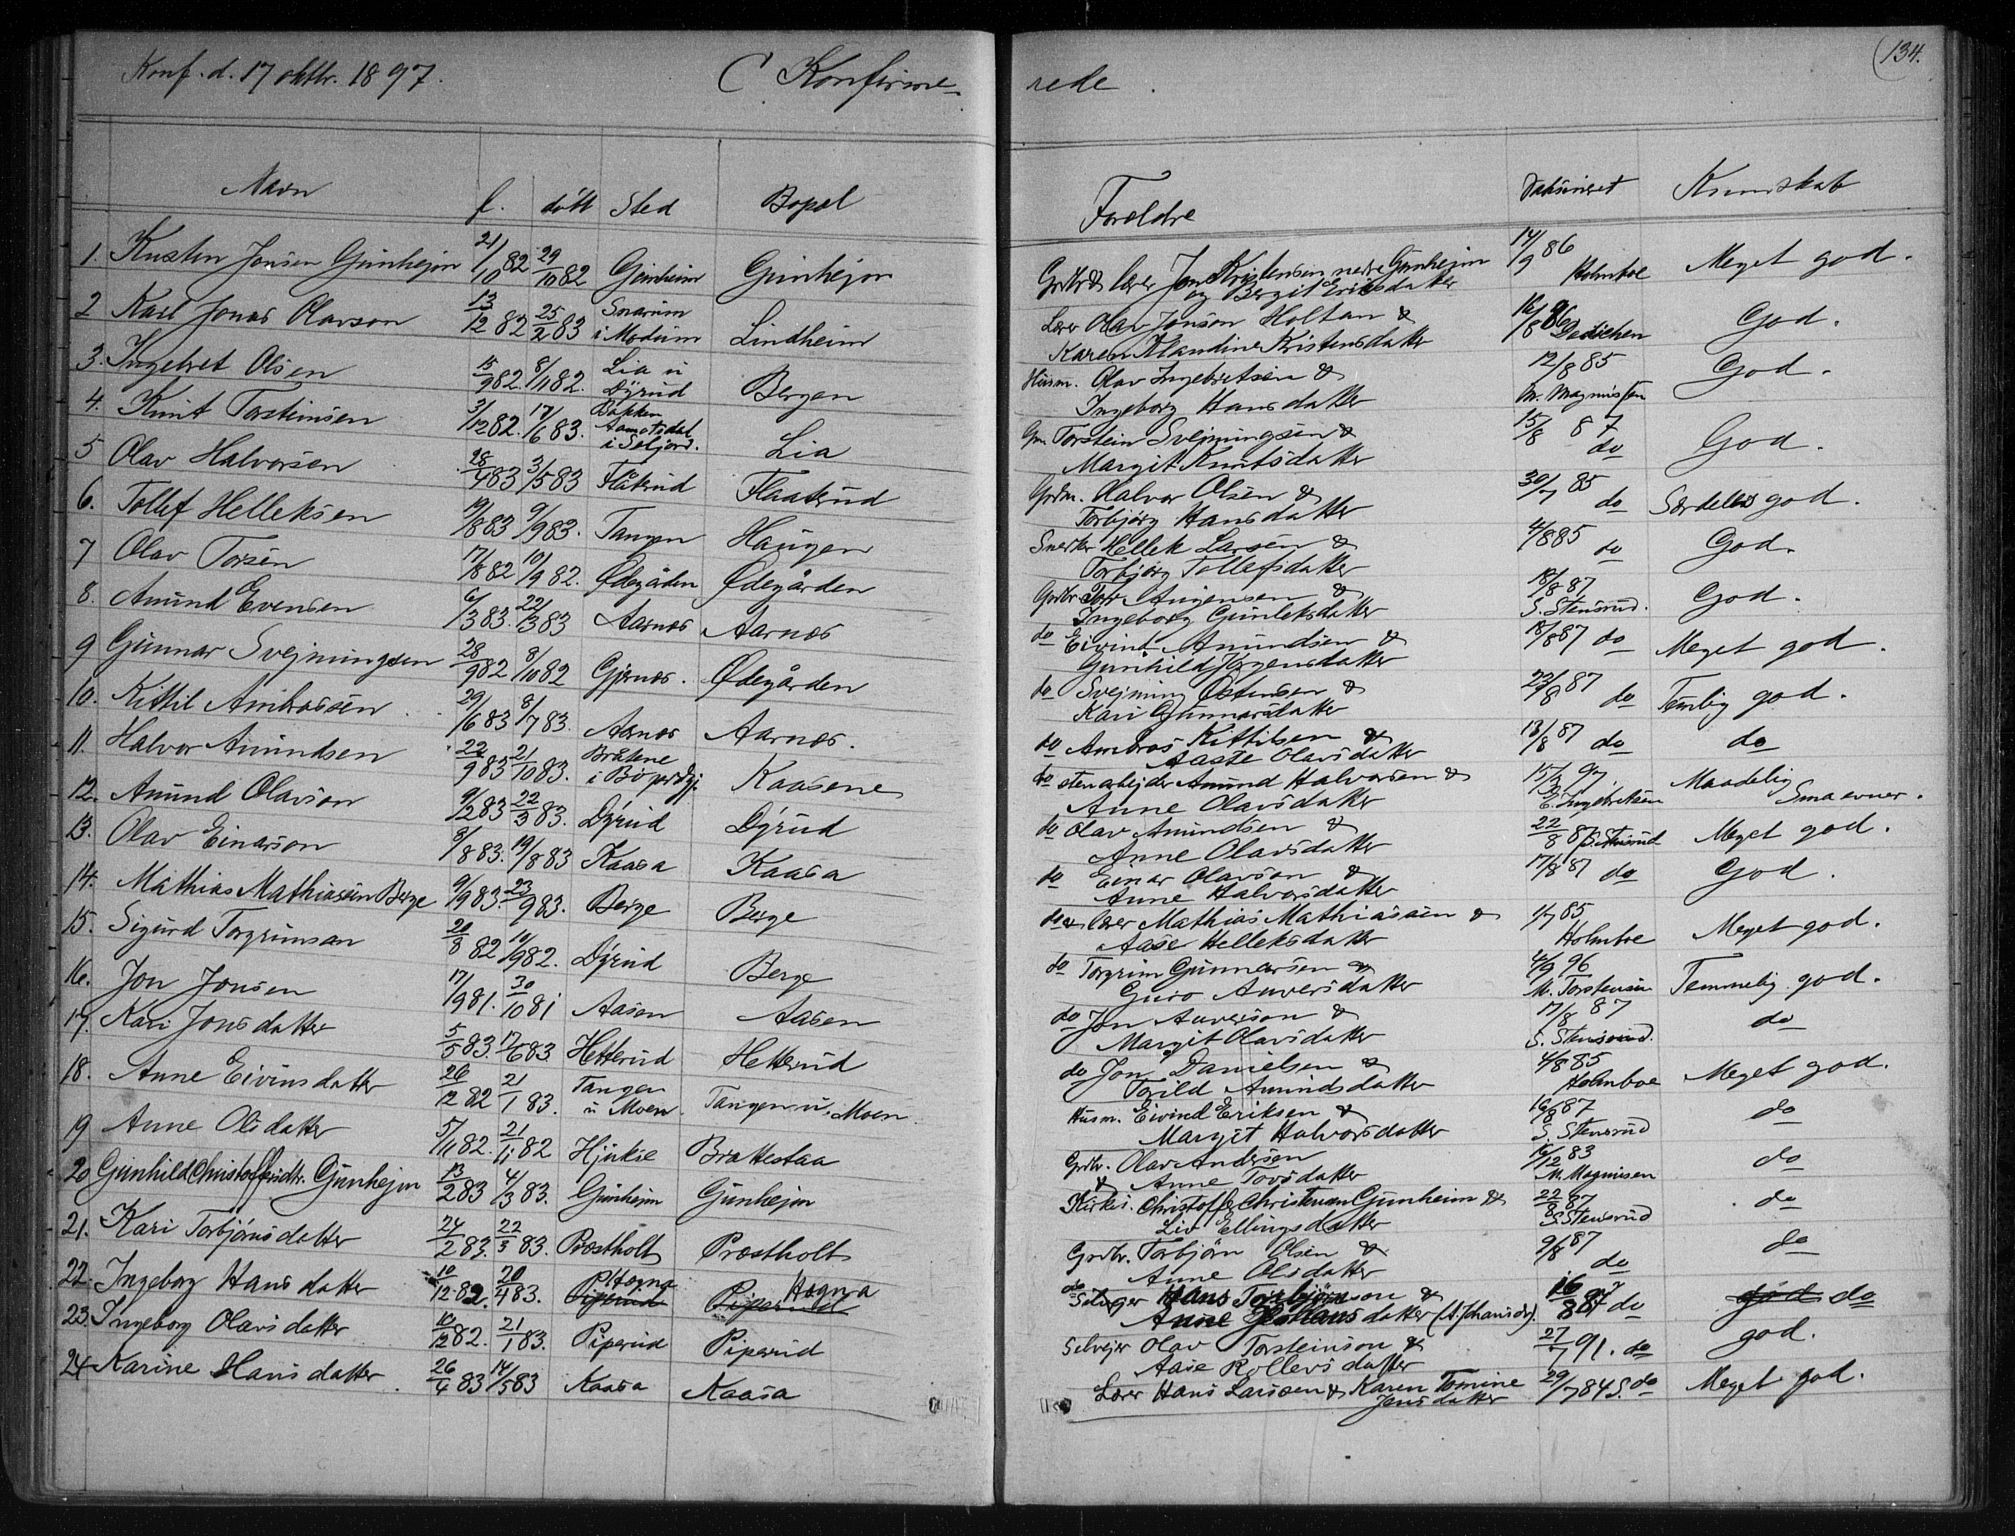 134.
Konf. d. 17 oktbr. 1897. C. Konfirme- rede.
Navn f. døbt Sted Bopæl Forældre Vaksineret Kundskab
1. Kristen Jonsen Gunhejm 21/10 82 29/10 82 Gunheim Gunhejm Grdbr & lærer Jon Kristensen nedre Gunheim 14/9 86 Meget god.
og Bergit Eriksdatter Holmboe
2 Karl Jonas Olavson 13/12 82 25/2 83 Snarum i Modum Lindheim Lærer Olav Jonson Holtan & 16/8 86 God.
Karen Klandine Kristensdatter Dedichen
3. Ingebret Olsen 15/9 82. 8/11 82. Lia u Dyrud Bergan Husm. Olav Ingebretsen & 12/8 85 God.
Ingeborg Hansdatter M. Magnussen
4. Knut Torsteinsen 3/12 82. 17/6 83. Bakken Aamotsdal i Seljord. Lia Gm. Torstein Svejnungsen & 15/8 87 God.
Margit Knutsdatter do
5 Olav Halvorsen 28/4 83 3/5 83 Flåtrud Flaatrud Grdm. Halvor Olsen & 30/7 85 Særdeles god.
Torbjörg Hansdatter do
6. Tollef Helleksen 19/8 83 9/9 83. Tangen Haugen Snerker Hellek Larsen & 4/8 85 God.
Torbjörg Tollefsdatter do
7 Olav Torsen 17/8 82 10/9 82. Ødegården Ødegården Grdbr Tor Augensen & 18/8 87, God.
Ingeborg Gunleksdatter S. Stensrud.
8. Amund Evensen 6/3 83. 22/3 83 Aarnæs Aarnæs do Eivind Amundsen & 18/8 87 do Meget god.
Gunhild Jörgensdatter
9 Gunnar Svejnungsen 28/9 82 8/10 82 Gjernæs. Ødegården do Svejnung Østensen & 23/8 87 do Temlig god.
Kari Gunnarsdatter
10. Kittil Ambrosen 29/6 83 8/7 83. Aarnæs Aarnæs. do Ambros Kittilsen & 18/8 87 do do
Aaste Olavsdatter
11. Halvor Amundsen 22/9 83 21/10 83. Bråtene i Bö prgj. Kaasene do stenarbejder Amund Halvorsen & Maadelig
Anne Olavsdatter E. Ingebretsen Smaa evner.
12. Amund Olavson 9/2 83 22/3 83. Dyrud Dyrud do Olav Amundsen & 22/8 87 S. Stensrud Meget god.
Anne Olavsdatter
13. Olav Einarson 8/8 83. 19/8 83 Kaasa Kaasa do Einar Olavson & 17/8 87 do God.
Anne Halvorsdatter
14. Mathias Mathiasen Berge 9/9 83. 23/9 83. Berge Berge do & lærer Mathias Mathiassen & 1/7 85 Meget god.
Aase Helleksdatter Holmboe
15. Sigurd Torgrimsan 20/8 82 10/9 82. Dyrud Berge do Torgrim Gunnarsen & 4/9 96 Temmelig god.
Guro Anversdatter M. Torstensen
16. Jon Jonsen 17/9 81. 30/10 81 Aasen Aasen do Jon Anverson & 17/8 87 do
Margit Olavsdatter S. Stensrud.
17. Kari Jonsdatter 5/5 83. 17/6 83. Hetterud Hetterud do Jon Danielsen & 4/8 85 Meget god.
Torild Amundsdatter Holmboe
18. Anne Eivinsdatter 26/12 82 21/1 83. Tangen u Moen. Tangen u. Moen Husm. Eivind Eriksen & 16/8 87 do
Margit Halvorsdatter S. Stensrud
19 Anne Olsdatter 5/11 82. 21/11 82 Hjukse Brattestaa Grdbr. Olav Andersen 16/12 83 do
& Anne Torsdatter M. Magnusen
20. Gunhild Christoffersdtr. Gunhejm 13/2 83 4/3 83. Gunhejm Gunhejm Kirkes. Christoffer Christensen Gunheim & 22/8 87 do
Liv Ellingsdatter S Stensrud
21. Kari Torbjörnsdatter 24/2 83. 22/3 83. Præstholt Præstholt Grdbr. Torbjörn Olsen & 9/8 87 do
Anne Olsdatter do
22. Ingeborg Hansdatter 10/12 82. 20/4 83. Hogna Piperud Hogna Piperud do Selvejer Hans Torbjörnson & 16/8 87 do god do
Anne Johansdatter (A. Johansdr).
23. Ingeborg Olavsdatter 10/12 82. 21/1 83. Piperud Piperud Selvejer Olav Torsteinson & 27/7 91. do god.
Aase Rollevsdatter
24 Karine Hansdatter 26/4 83 14/5 83 Kaasa Kaasa Lærer Hans Larssen & Karen Tomine 29/7 84 S. do Meget god.
Jensdatter